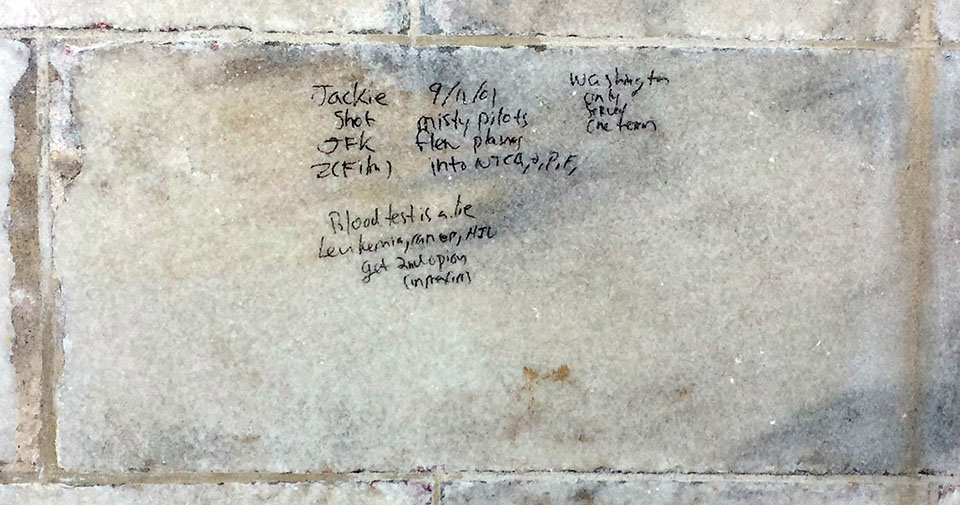 Jackie
Shot
JFK
Z(Film)
9/11/01
misty pilots
flew planes
into
Washington
only
served
one term
Blood test is a lie
Leukemia, cancer, HIV
get 2nd opion